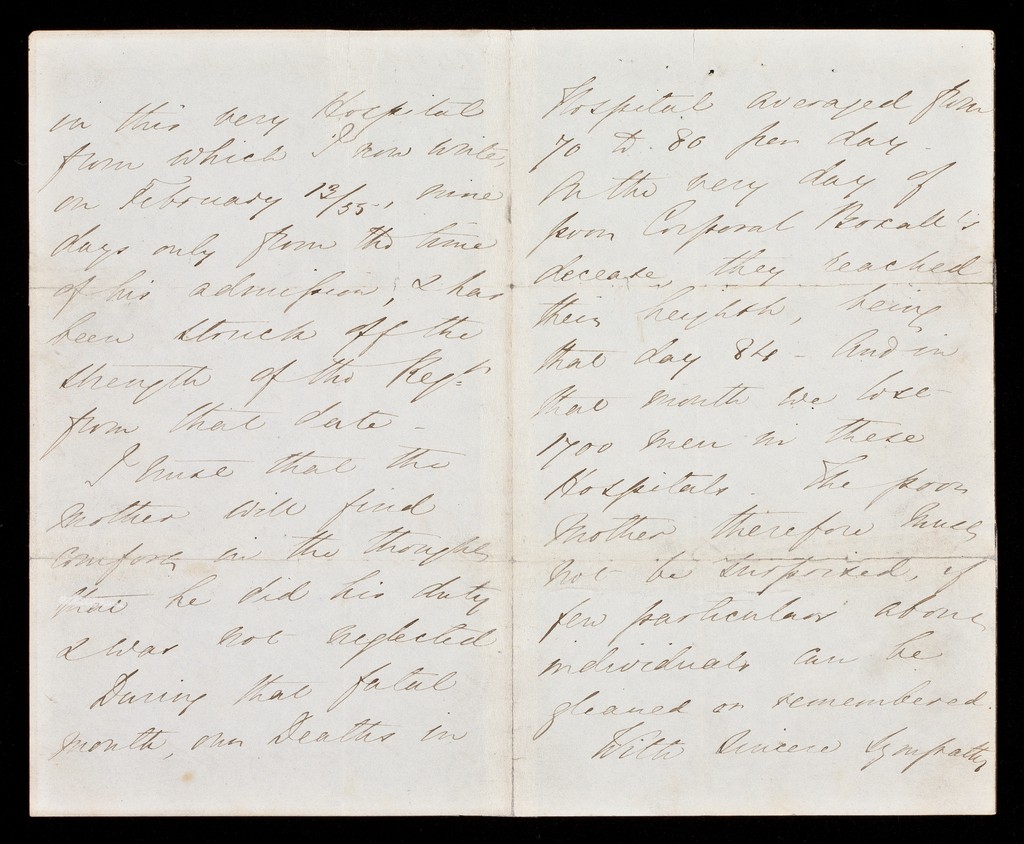 in this very Hospital
from which I now write,
on February 13/55, nine
days only from the time
of his admission, & has
been struck off the
strength of the Regt.
from that date -
I trust that the
Mother will find
comfort in the thought
that he did his duty
& was not neglected.
During that fatal
month, our Deaths in
Hospital averaged from
70 to 80 per day -
On the very day of
poor Corporal Boxall's
decease, they reached
their heighth, being
that day 84 - And in
that month we lost
1700 men in these
Hospitals. The poor
Mother therefore must
not be surprised, if
few particulars about
individuals can be
gleaned or remembered.
With sincere sympathy